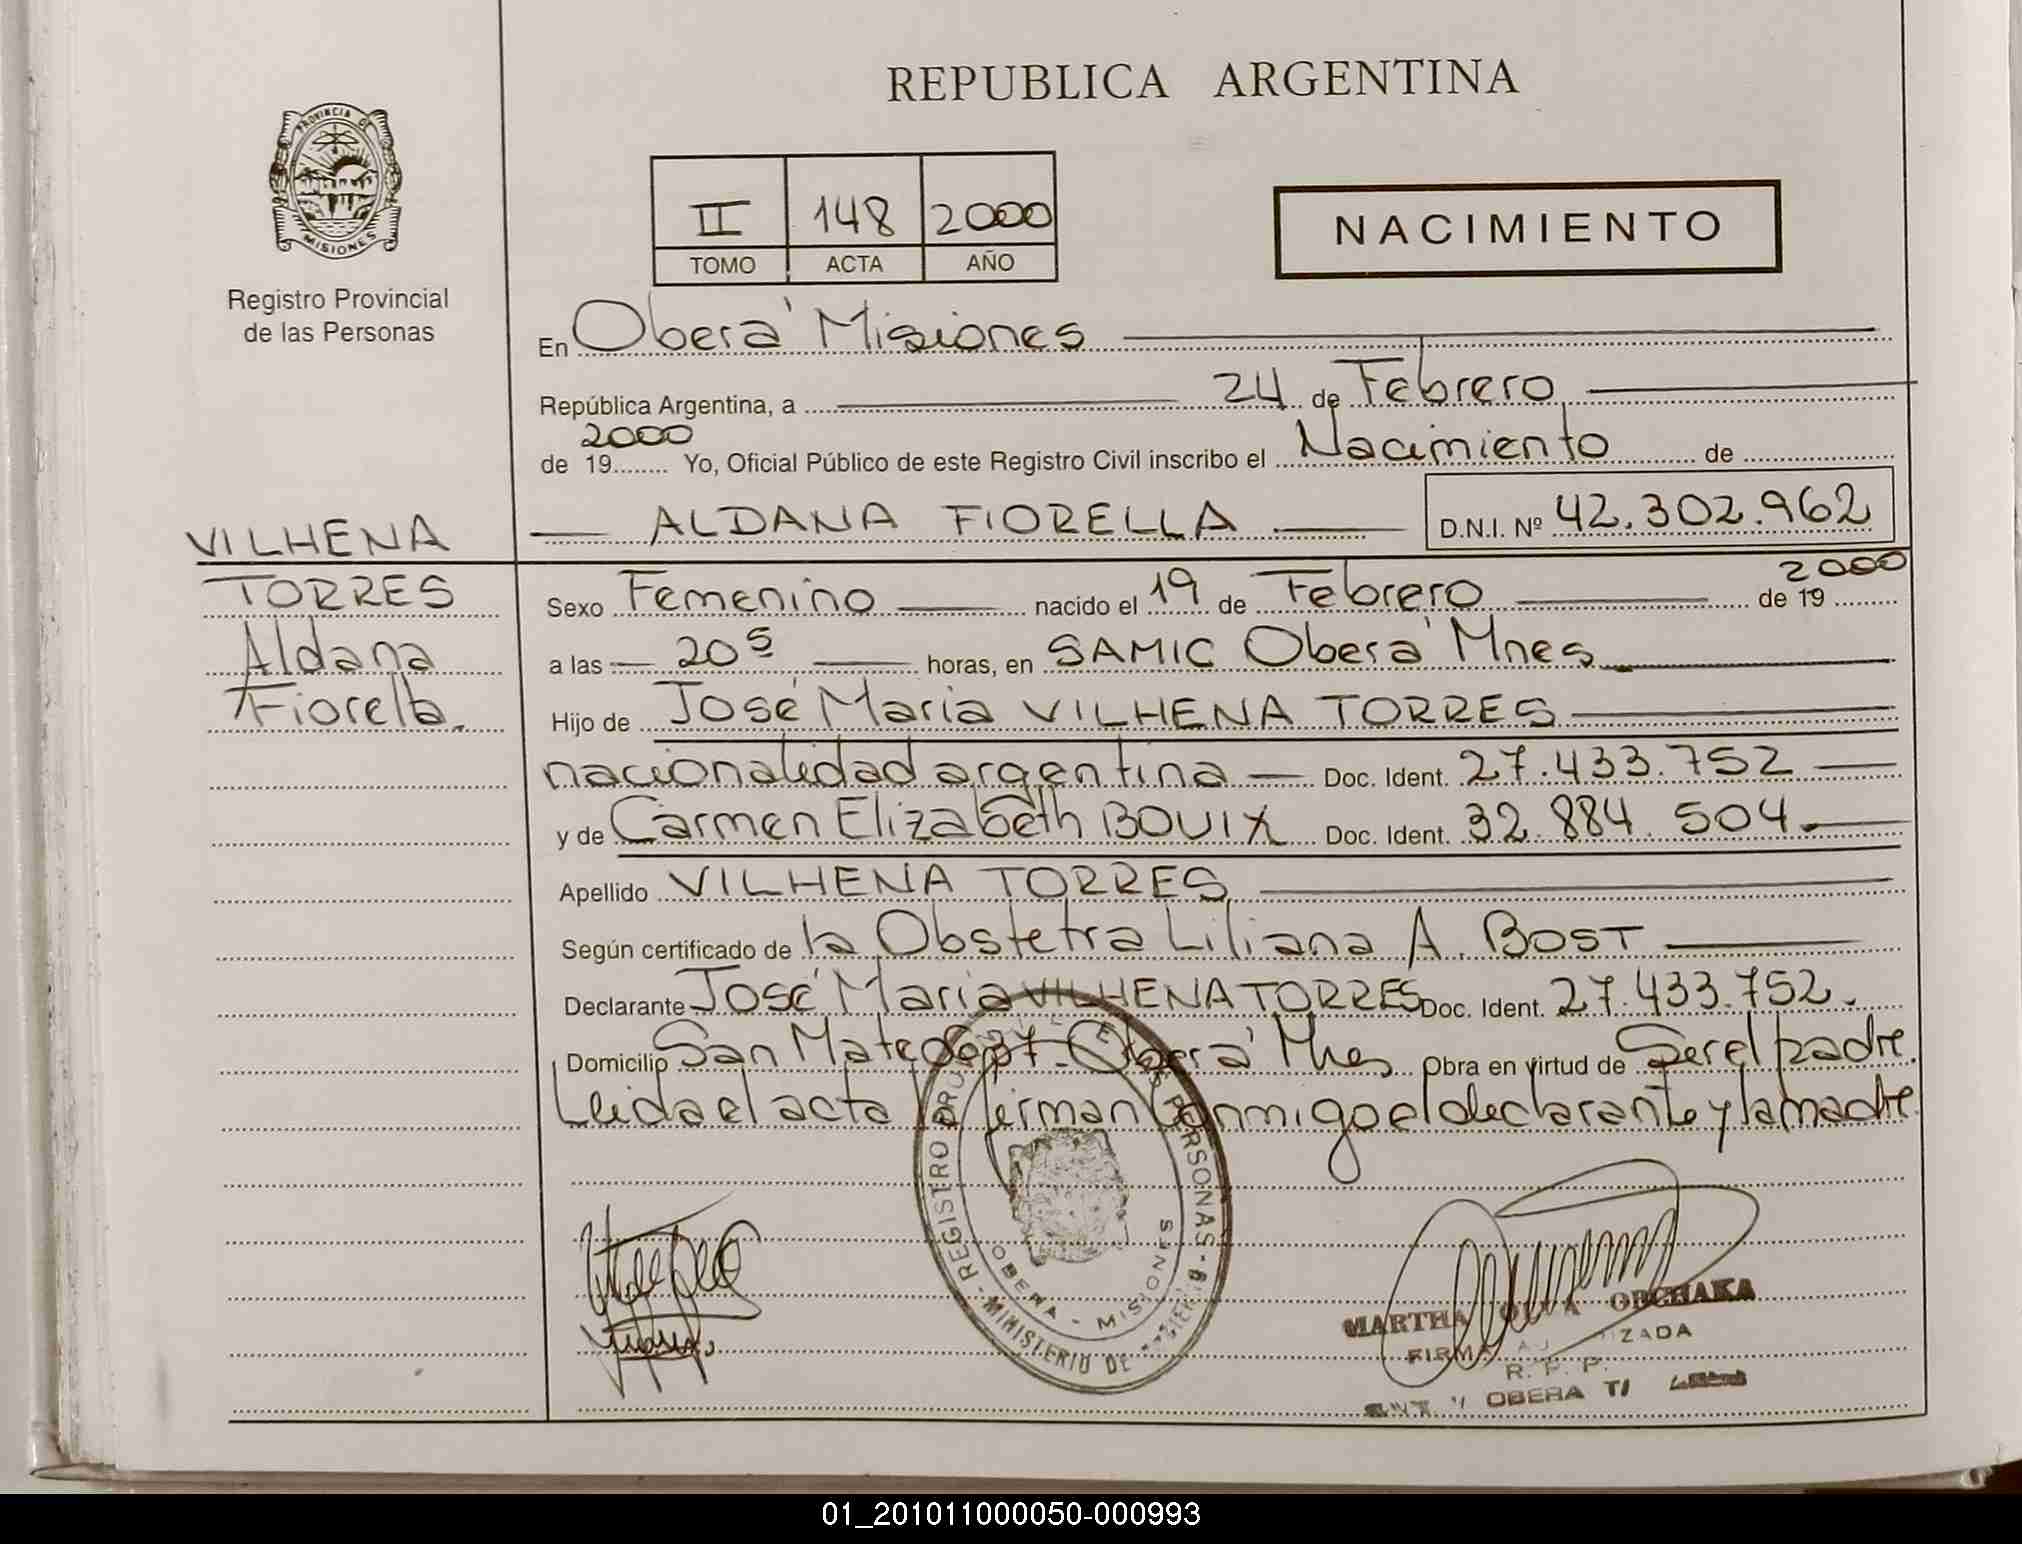 REPUBLICA ARGENTINA
PROVINCIA DE
MISIONES
Registro Provincial
de las Personas
II 148 2000
TOMO ACTA AÑO
NACIMIENTO
En Oberá Misiones
República Argentina, a 24 de Febrero
2000
de 19 Yo, Oficial Público de este Registro Civil inscribo el Nacimiento de
ALDANA FIORELLA D.N.I. Nº 42.302.962
VILHENA
TORRES
Aldana
Fiorella.
2000
Sexo Femenino nacido el 19 de Febrero de 19
a las 20 s horas, en SAMIC Oberá Mnes
Hijo de José Maria VILHENA TORRES
nacionalidad argentina Doc. Ident. 27.433.752
y de Carmen Elizabeth BOUIX Doc. Ident. 32.884.504.
Apellido VILHENA TORRES
Según certificado de la Obstetra Liliana A. BOST
Declarante José Maria VILHENA TORRES Doc. Ident. 27.433.752.
Domicilio San Mateo Oberá Mnes Obra en virtud de Ser el padre.
Leida el acta la firman conmigo el declarante y la madre.
REGISTRO PERSONAS
MINISTERIO DE
OBERA - MISIONES
MARTHA OLVA OBCHAKA
FIRMA AUTORIZADA
R. P. P.
OBERA
01_201011000050-000993